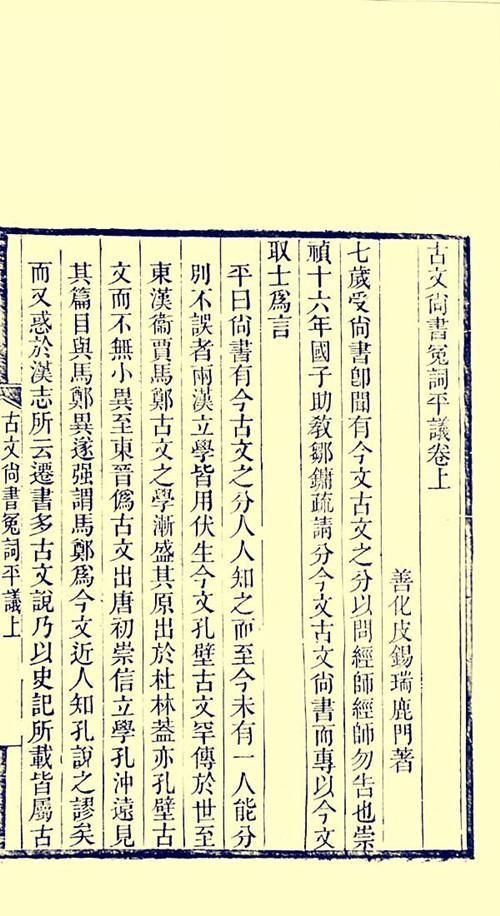 古文尚書冤詞平議卷上
善化皮錫瑞鹿門著
七歲受尚書卽聞有今文古文之分以問經師經師勿告也崇
禎十六年國子助敎鄒鏞疏請分今文古文尚書而專以今文
取士爲言
平曰尚書有今古文之分人人知之而至今未有一人能分
別不誤者兩漢立學皆用伏生今文孔壁古文罕傳於世至
東漢衞賈馬鄭古文之學漸盛其原出於杜林蓋亦孔壁古
文而不無小異至東晉僞古文出唐初崇信立學孔沖遠見
其篇目與馬鄭異遂强謂馬鄭爲今文近人知孔說之謬矣
而又惑於漢志所云遷書多古文說乃以史記所載皆屬古
古文尚書冤詞平議上